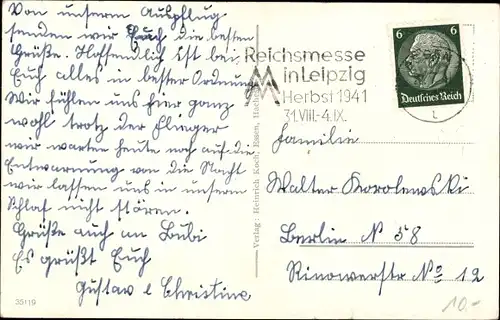 Von unserm Ausflug
senden wir Euch die besten
Grüße. Hoffendlich ist bei
Euch alles in bester Ordnung
Wir fühlen uns hier ganz
wohl trotz der Flieger
wir warten heute noch auf die
Entwarnung von die Nacht
wir lassen uns in unserm
Schlaf nicht stören.
Grüße auch an Bubi
Es grüßt Euch
Gustav e Christine
35119
Verlag: Heinrich Koch, Essen,
Reichsmesse
in Leipzig
Herbst 1941
31.VIII.-4.IX.
6 6
Deutsches Reich
Familie
Walter Korolewski
Berlin N 58
Rinowerstr No 12
10.-